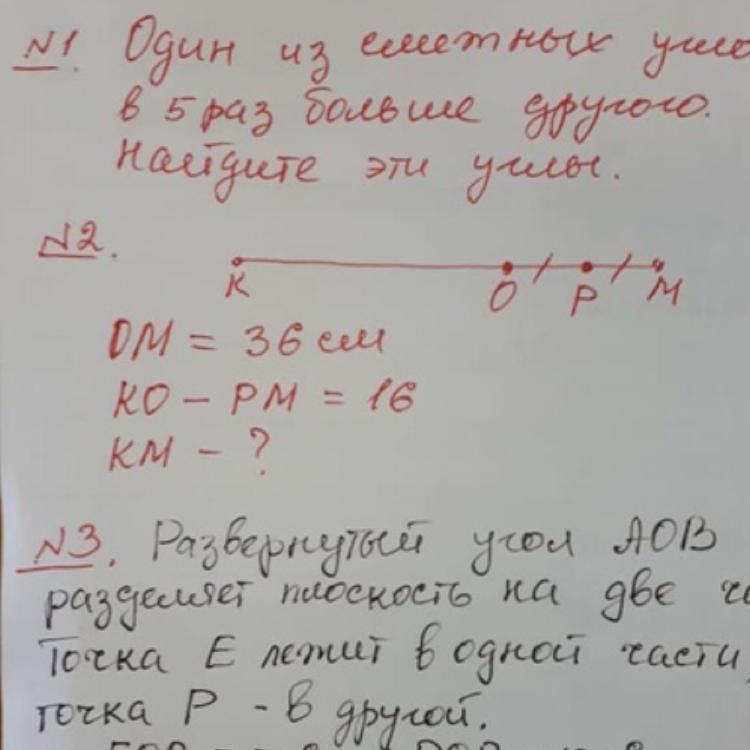 N1 Один из смежных
в 5 раз больше другого.
Найдите эти углы.
N2.
K O P M
OM = 36 см
KO - PM = 16
KM - ?
N3. Развернутый угол AOB
разделяет плоскость на две
Точка E лежит в одной части,
точка P - в другой.